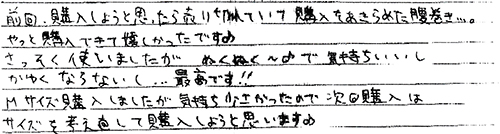 前回、購入しようと思ったら売り切れていて購入をあきらめた腹巻き…。
やっと購入できて嬉しかったです♪
さっそく使いましたが ぬくぬく～♪で気持ちいいし
かゆくならないし…最高です!!
Mサイズ購入しましたが気持ち小さかったので次回購入は
サイズを考え直して購入しようと思います♪